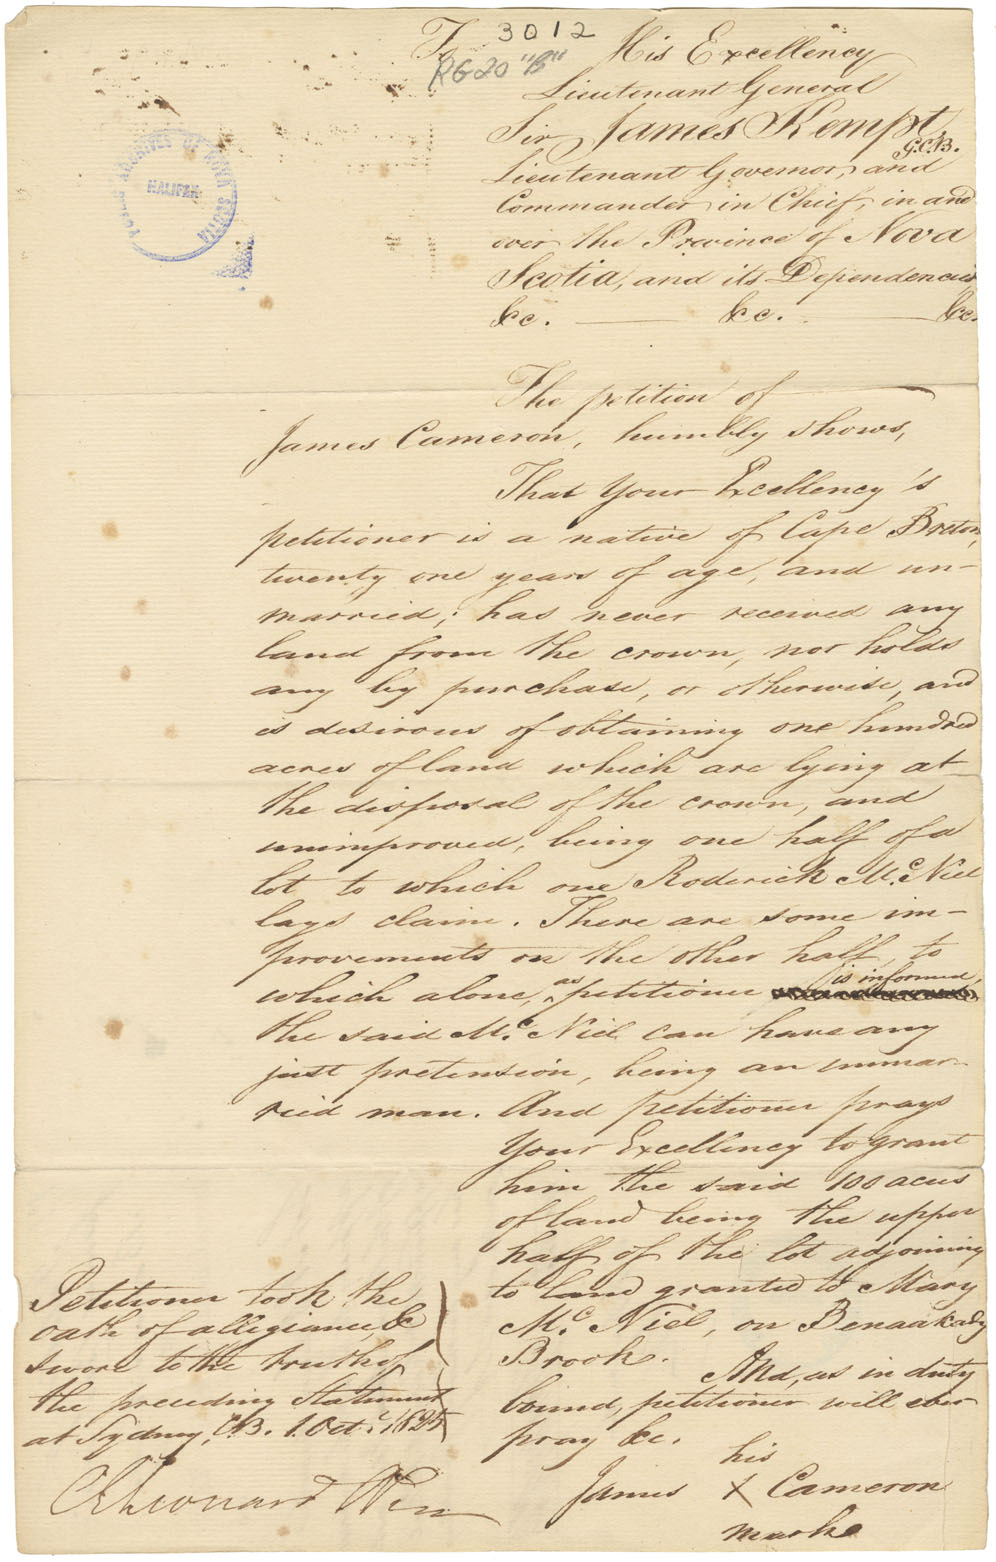 3012
RG 20 "B"
To His Excellency
Lieutenant General
Sir James Kempt,
G.C.B.
Lieutenant Governor, and
Commander in Chief, in and
over the Province of Nova
Scotia, and its Dependencies
&c. — &c. — &c.
PUBLIC ARCHIVES OF NOVA SCOTIA
HALIFAX
The petition of
James Cameron, humbly shows,
That Your Excellency's
petitioner is a native of Cape Breton,
twenty one years of age, and un-
married; has never received any
land from the crown, nor holds
any by purchase, or otherwise, and
is desirous of obtaining one hundred
acres of land which are lying at
the disposal of the crown, and
unimproved, being one half of a
lot to which one Roderick Mc. Niel
lays claim. There are some im-
provements on the other half, to
which alone, as petitioner is informed,
the said Mc. Niel can have any
just pretension, being an unmar-
ried man. And petitioner prays
Your Excellency to grant
him the said 100 acres
of land being the upper
half of the lot adjoining
to land granted to Mary
Mc. Niel, on Benaakady
Brook.
And, as in duty
bound, petitioner will ever
pray &c.
his
James X Cameron
mark
Petitioner took the
oath of allegiance, &
swore to the truth of
the preceding Statement
at Sydney, C.B. 1. Oct. 1825